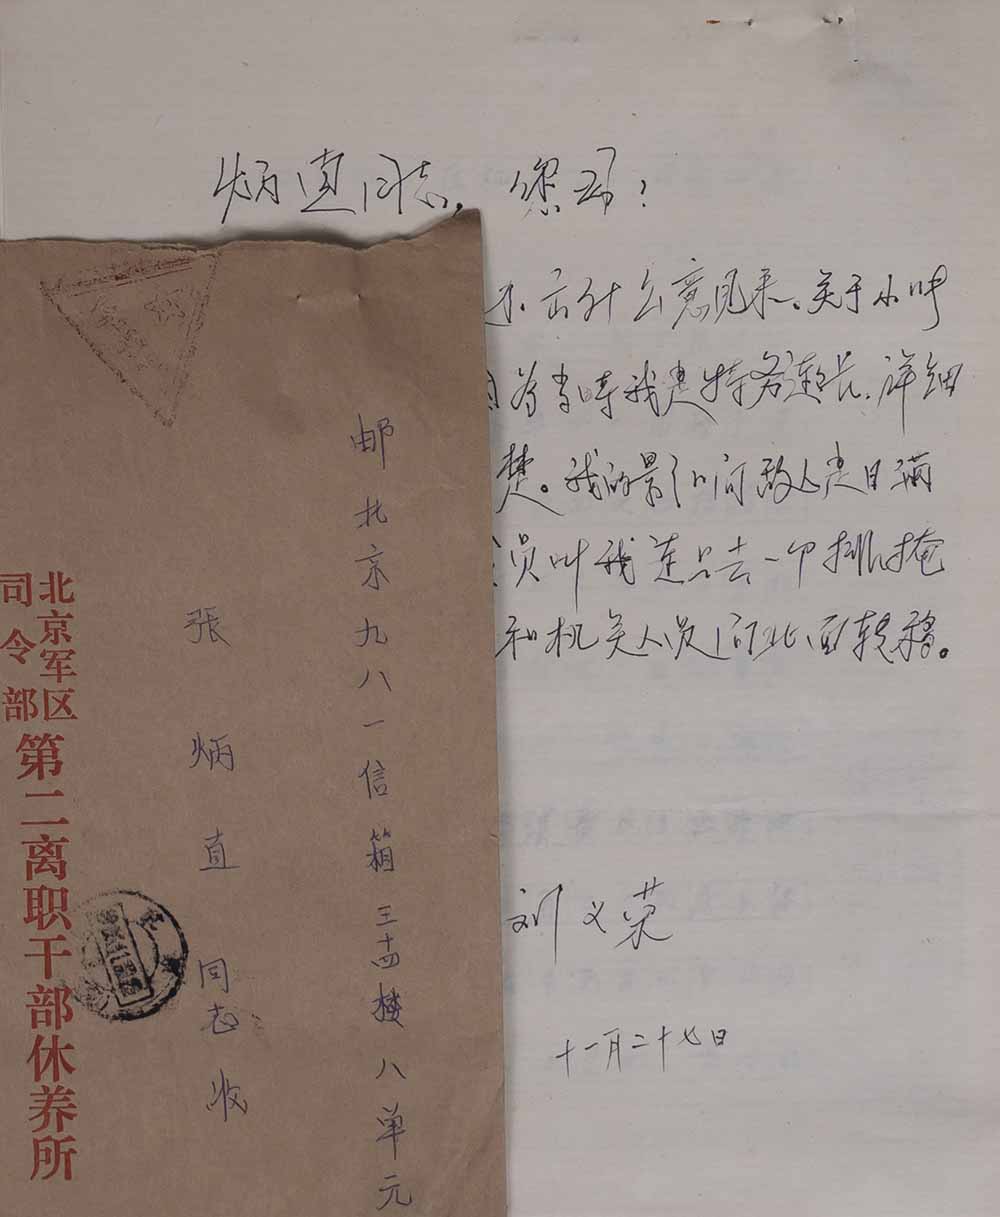 炳直同志，您好！
不出什么意见来。关于小叶
为当时我是特务连长，详细
楚。我的影响敌人是日满
员叫我连只去一个排掩
和机关人员向北面转移。
刘义荣
十一月二十七日
邮北京九八一信箱三十四楼八单元
張炳直同志收
北京军区
司令部
第二离职干部休养所